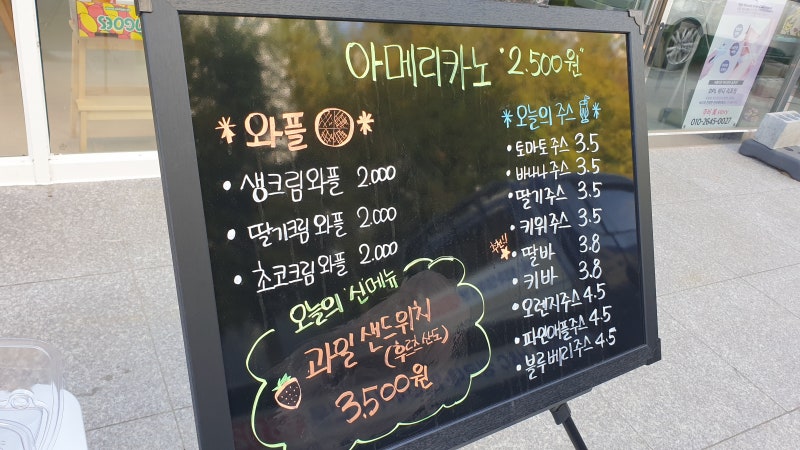 아메리카노 "2.500원"
*와플*
• 생크림 와플 2.000
• 딸기크림 와플 2.000
• 초코크림 와플 2.000
오늘의 신메뉴
과일 샌드위치
(후르츠 산도)
3,500원
*오늘의 주스*
• 토마토 주스 3.5
• 바나나 주스 3.5
• 딸기 주스 3.5
• 키위 주스 3.5
추천!!
• 딸바 3.8
• 키바 3.8
• 오렌지 주스 4.5
• 파인애플 주스 4.5
• 블루베리 주스 4.5
010-2645-0027